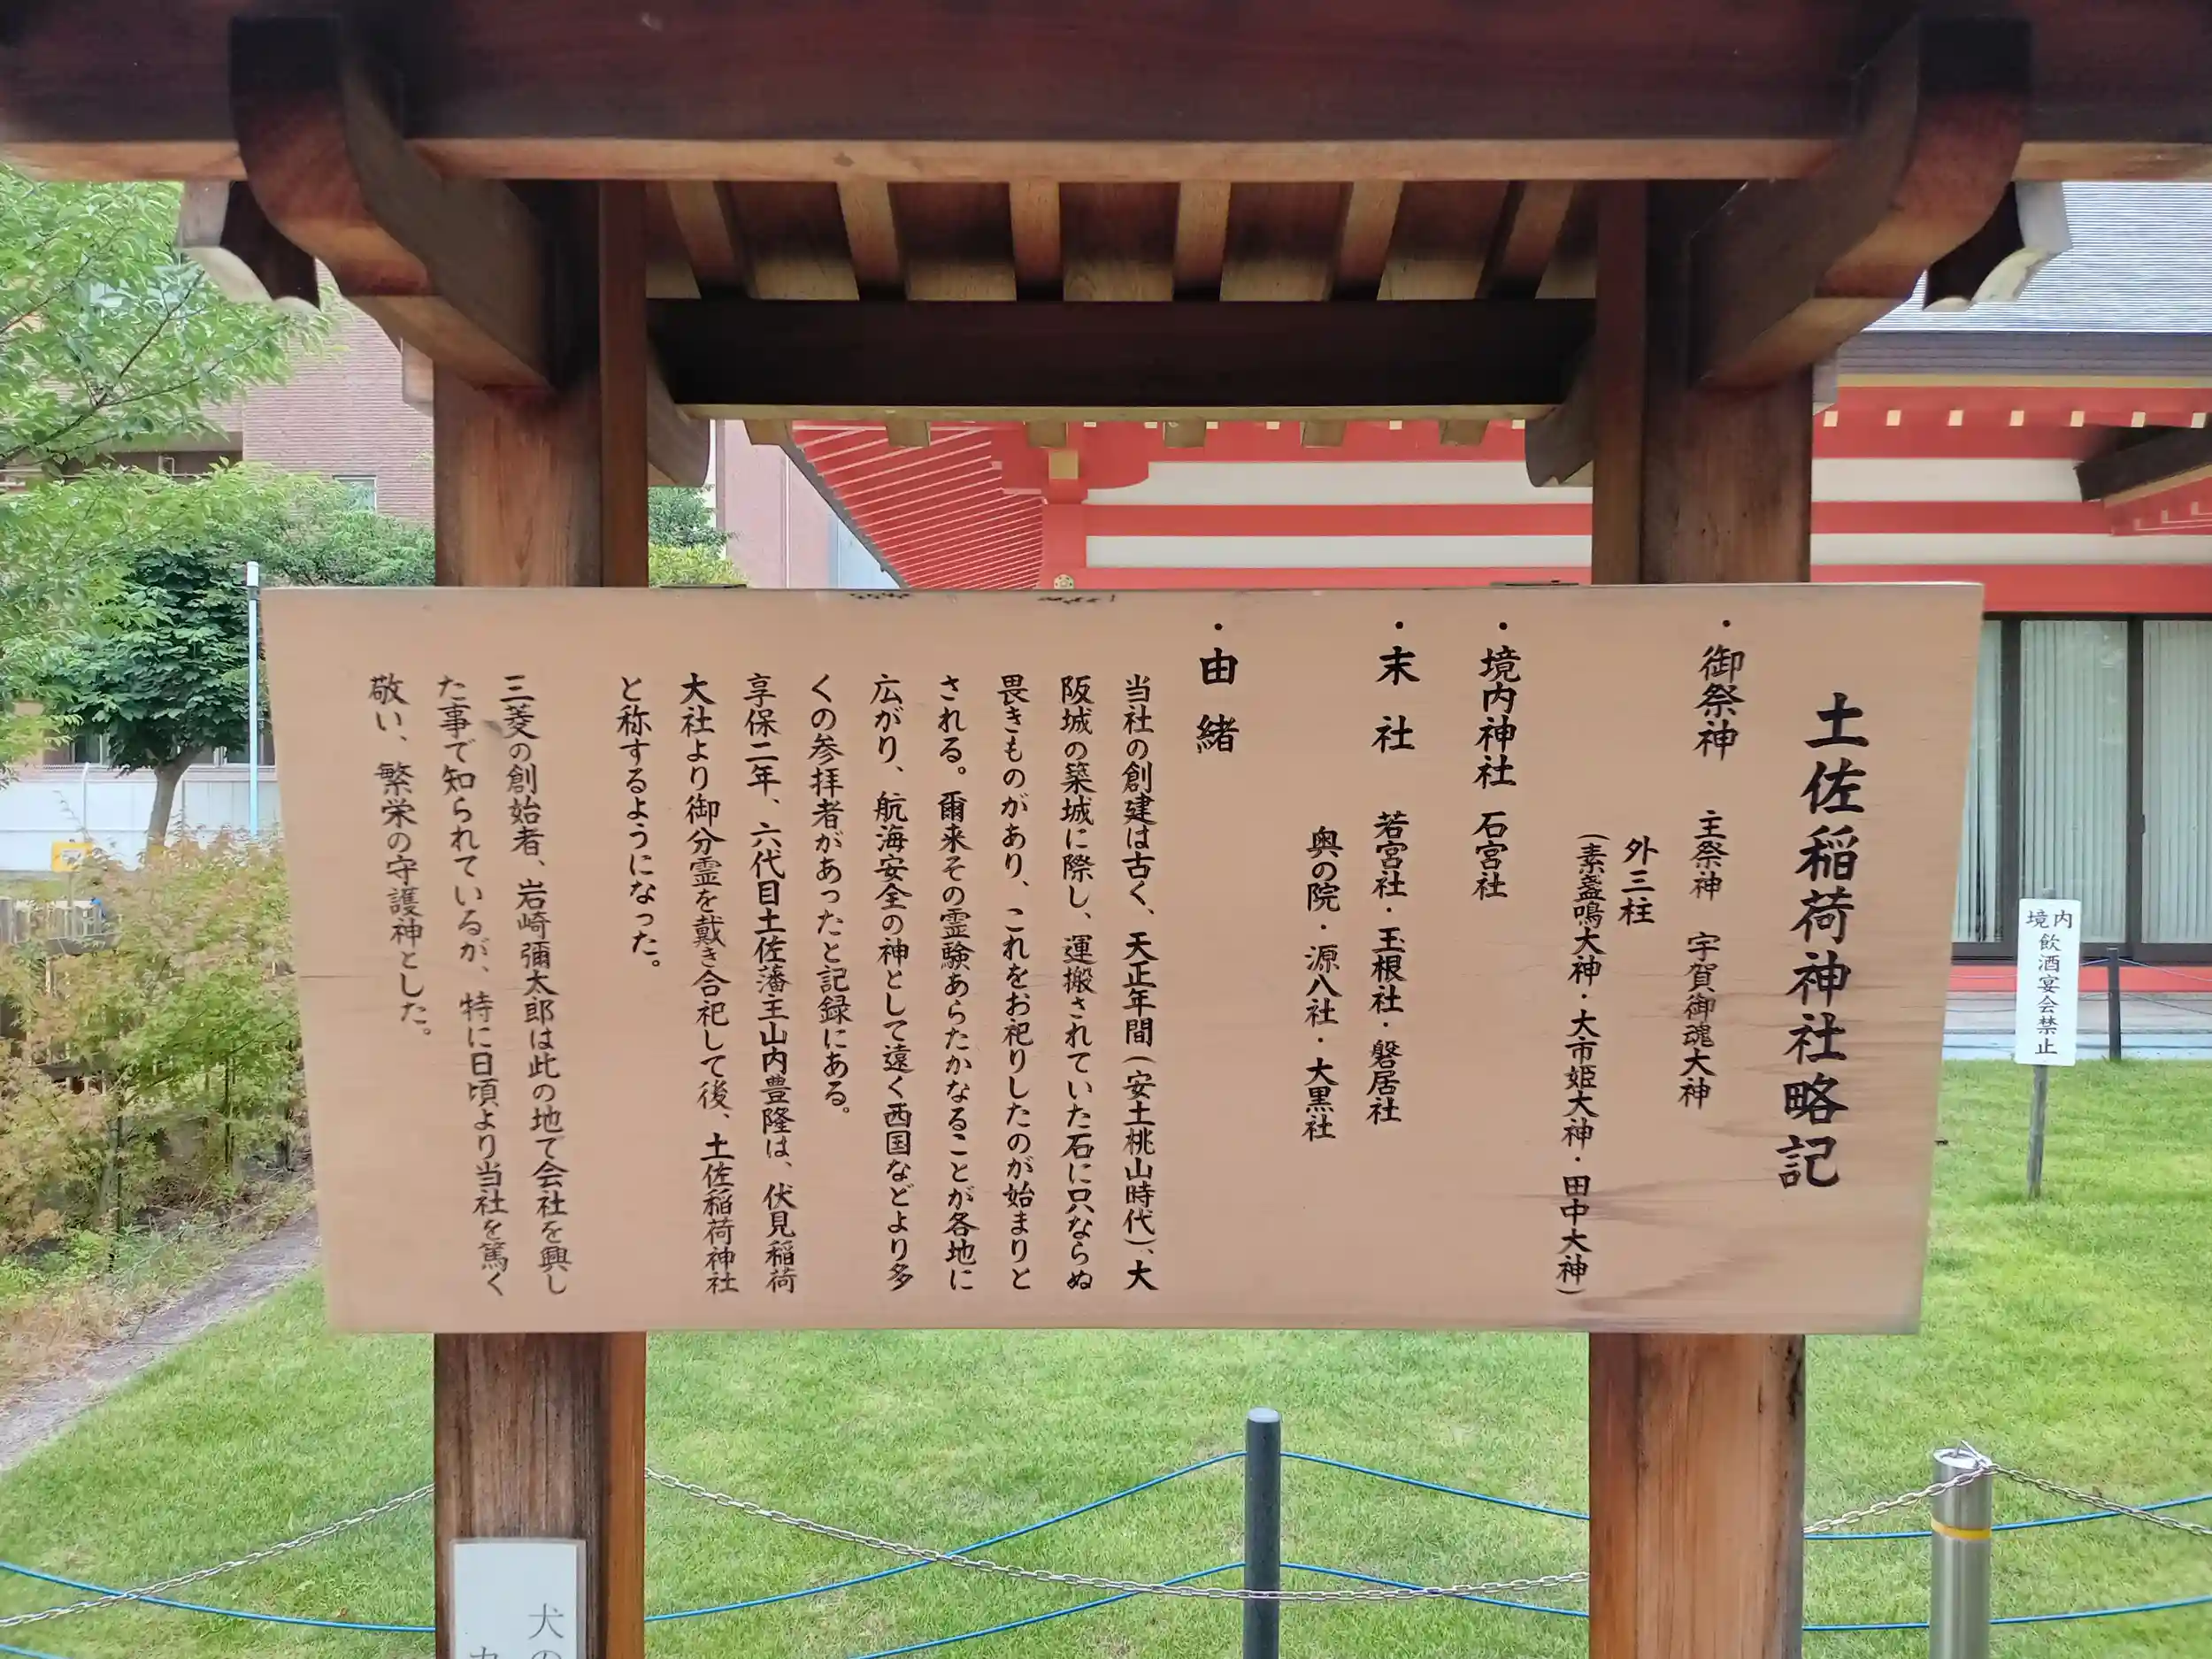 土佐稲荷神社略記
・御祭神 主祭神 宇賀御魂大神
外三柱
(素盞鳴大神・大市姫大神・田中大神)
・境内神社 石宮社
・末社 若宮社・玉根社・磐居社
奥の院・源八社・大黒社
・由緒
当社の創建は古く、天正年間(安土桃山時代)、大
阪城の築城に際し、運搬されていた石に只ならぬ
畏きものがあり、これをお祀りしたのが始まりと
される。爾来その霊験あらたかなることが各地に
広がり、航海安全の神として遠く西国などより多
くの参拝者があったと記録にある。
享保二年、六代目土佐藩主山内豊隆は、伏見稲荷
大社より御分霊を戴き合祀して後、土佐稲荷神社
と称するようになった。
三菱の創始者、岩崎彌太郎は此の地で会社を興し
た事で知られているが、特に日頃より当社を篤く
敬い、繁栄の守護神とした。
境内
飲酒宴会禁止
犬の